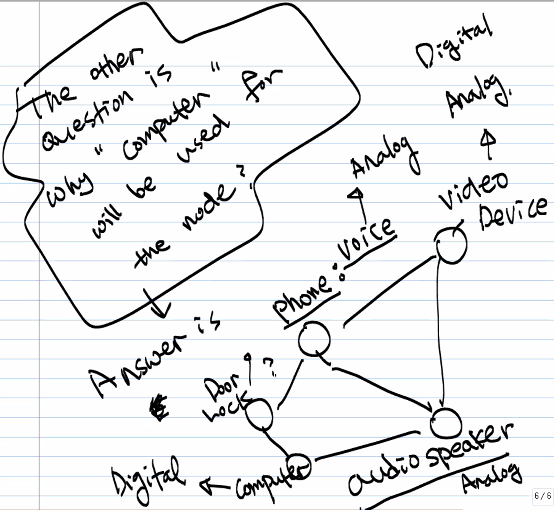 The other
Question is
why "computer" for
will be used
the node?
Answer is
Digital
Analog.
video
Device
Analog
phone: voice
Door
Lock
?
audio speaker
Analog
computer
Digital
6/6